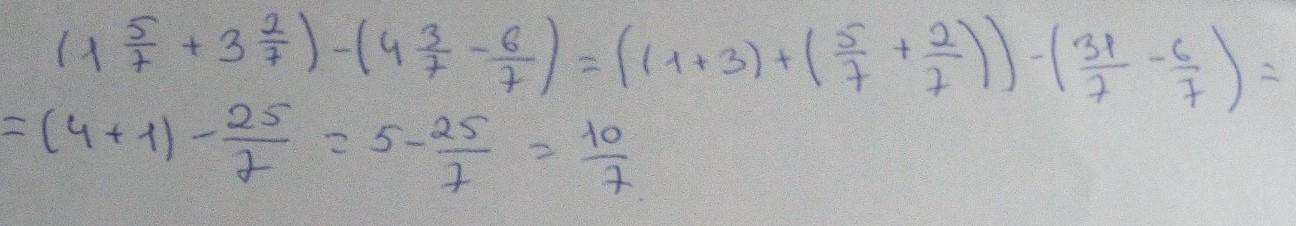 (1 5/7 + 3 2/7) - (4 3/7 - 6/7) = ((1+3) + (5/7 + 2/7)) - (31/7 - 6/7) =
= (4+1) - 25/7 = 5 - 25/7 = 10/7